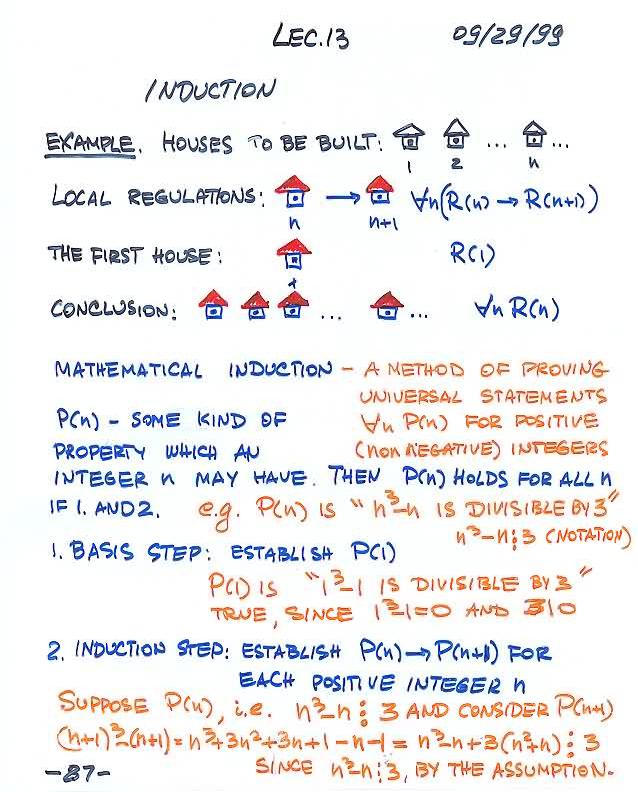 LEC.13 09/29/99
INDUCTION
EXAMPLE. HOUSES TO BE BUILT: ... ...
1 2 n
LOCAL REGULATIONS: → ∀n(R(n) → R(n+1))
n n+1
THE FIRST HOUSE: R(1)
1
CONCLUSION: ... ... ∀n R(n)
MATHEMATICAL INDUCTION – A METHOD OF PROVING
UNIVERSAL STATEMENTS
P(n) – SOME KIND OF ∀n P(n) FOR POSITIVE
PROPERTY WHICH AN (non NEGATIVE) INTEGERS
INTEGER n MAY HAVE. THEN P(n) HOLDS FOR ALL n
IF 1. AND 2. e.g. P(n) IS "n³–n IS DIVISIBLE BY 3"
n³–n⋮3 (NOTATION)
1. BASIS STEP: ESTABLISH P(1)
P(1) IS "1³–1 IS DIVISIBLE BY 3"
TRUE, SINCE 1³–1=0 AND 3|0
2. INDUCTION STEP: ESTABLISH P(n)→P(n+1) FOR
EACH POSITIVE INTEGER n
SUPPOSE P(n), i.e. n³–n⋮3 AND CONSIDER P(n+1)
(n+1)³–(n+1) = n³+3n²+3n+1–n–1 = n³–n+3(n²+n)⋮3
–87– SINCE n³–n⋮3, BY THE ASSUMPTION.